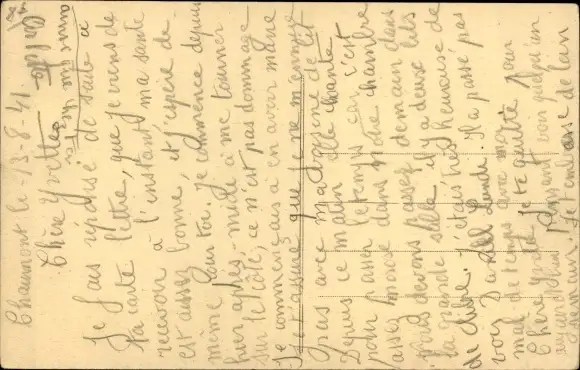 Chaumont le -13-8-41.
Chère Yvette
Je fais réponse de suite à
ta carte lettre, que je viens de
recevoir à l'instant, ma santé
est assez bonne, et j'espère de
même pour toi. Je commence depuis
hier après-midi à me tourner
sur le côté, ce n'est pas dommage
Je commençais à en avoir marre
Je t'assure que je ne m'ennuie
pas avec ma
Depuis ce matin elle chante
pour passer le temps car c'est
assez morose dans notre chambre
Nous devons passer demain dans
la grande salle, il y a deux lits
de libre. J'étais très heureuse de
voir Lundi. Il a passé pas
mal de temps avec moi
Chère Yvette je te quitte pour
aujourd'hui, quelqu'un
demain. Je t'embrasse de loin